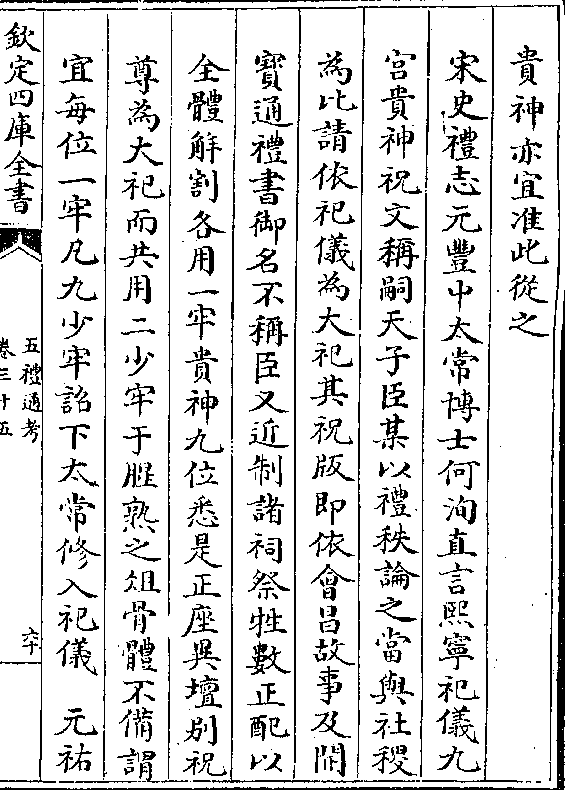 貴神亦宜准此從之
宋史禮志元豐中太常博士何洵直言熙寧祀儀九
宮貴神祝文稱嗣天子臣某以禮秩論之當與社稷
為比請依祀儀為大祀其祝版即依會昌故事及開
寳通禮書御名不稱臣又近制諸祠祭牲數正配以
全體解割各用一牢貴神九位悉是正座異壇别祝
尊為大祀而共用二少牢于腥熟之俎骨體不備謂
宜每位一牢凡九少牢詔下太常修入祀儀　元祐
欽定四庫全書
五禮通考
卷三十五
六十